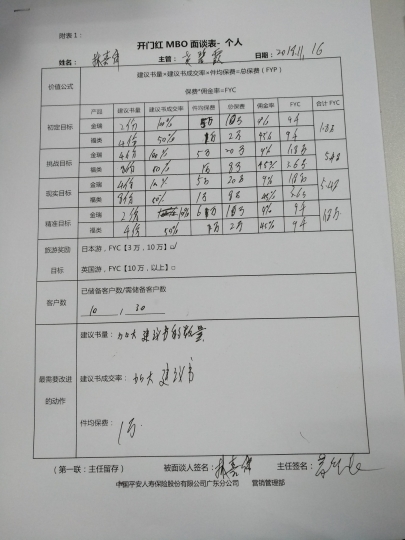 附表1：
开门红 MBO 面谈表- 个人
姓名： 主管： 日期：2019.11.16
价值公式 建议书量×建议书成交率×件均保费=总保费（FYP）
保费*佣金率=FYC
产品 建议书量 建议书成交率 件均保费 总保费 佣金率 FYC 合计 FYC
初定目标 金瑞 2份 100% 5万 10万 9% 9千
福类 4份 50% 1万 2万 45% 9千
挑战目标 金瑞 4份 100% 5万 20万 9% 1.8万
福类 8份 50% 1万 45% 3.6万
现实目标 金瑞 4份 5万 20万 9% 1.8万
福类 8份 50% 1万 45% 3.6万
精准目标 金瑞 2份 10万 9% 9千
福类 4份 50% 1万 2万 45% 9千
旅游奖励 日本游，FYC【3万，10万】☑
目标 英国游，FYC【10万，以上】□
客户数 已储备客户数/需储备客户数
10 , 30
最需要改进的动作
建议书量：加大建议书的数量
建议书成交率：加大建议书
件均保费：1万
（第一联：主任留存） 被面谈人签名： 主任签名：
中国平安人寿保险股份有限公司广东分公司 营销管理部